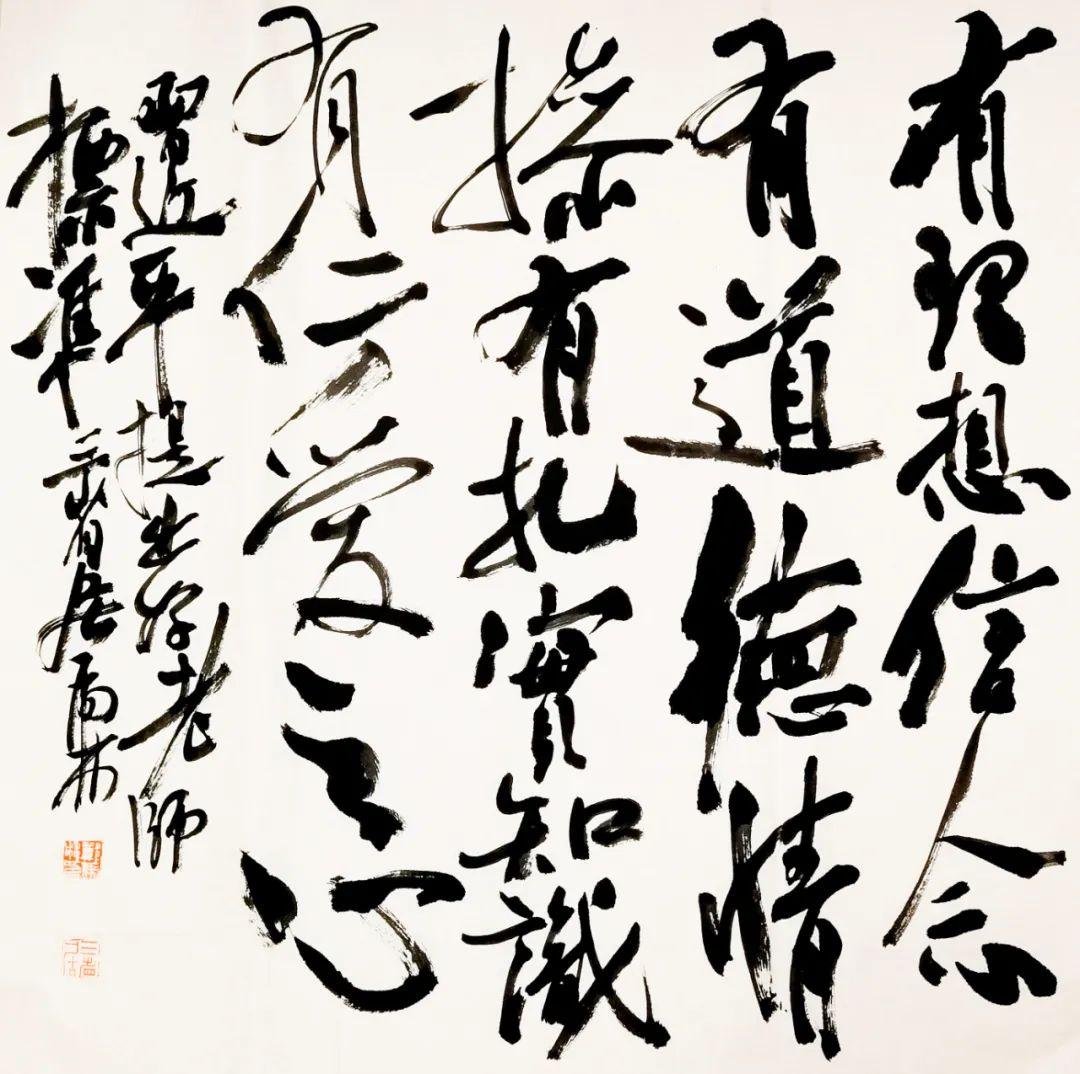 有理想信念
有道德情
操有扎實知識
有仁爱之心
習近平提出好老師
標準 三省居